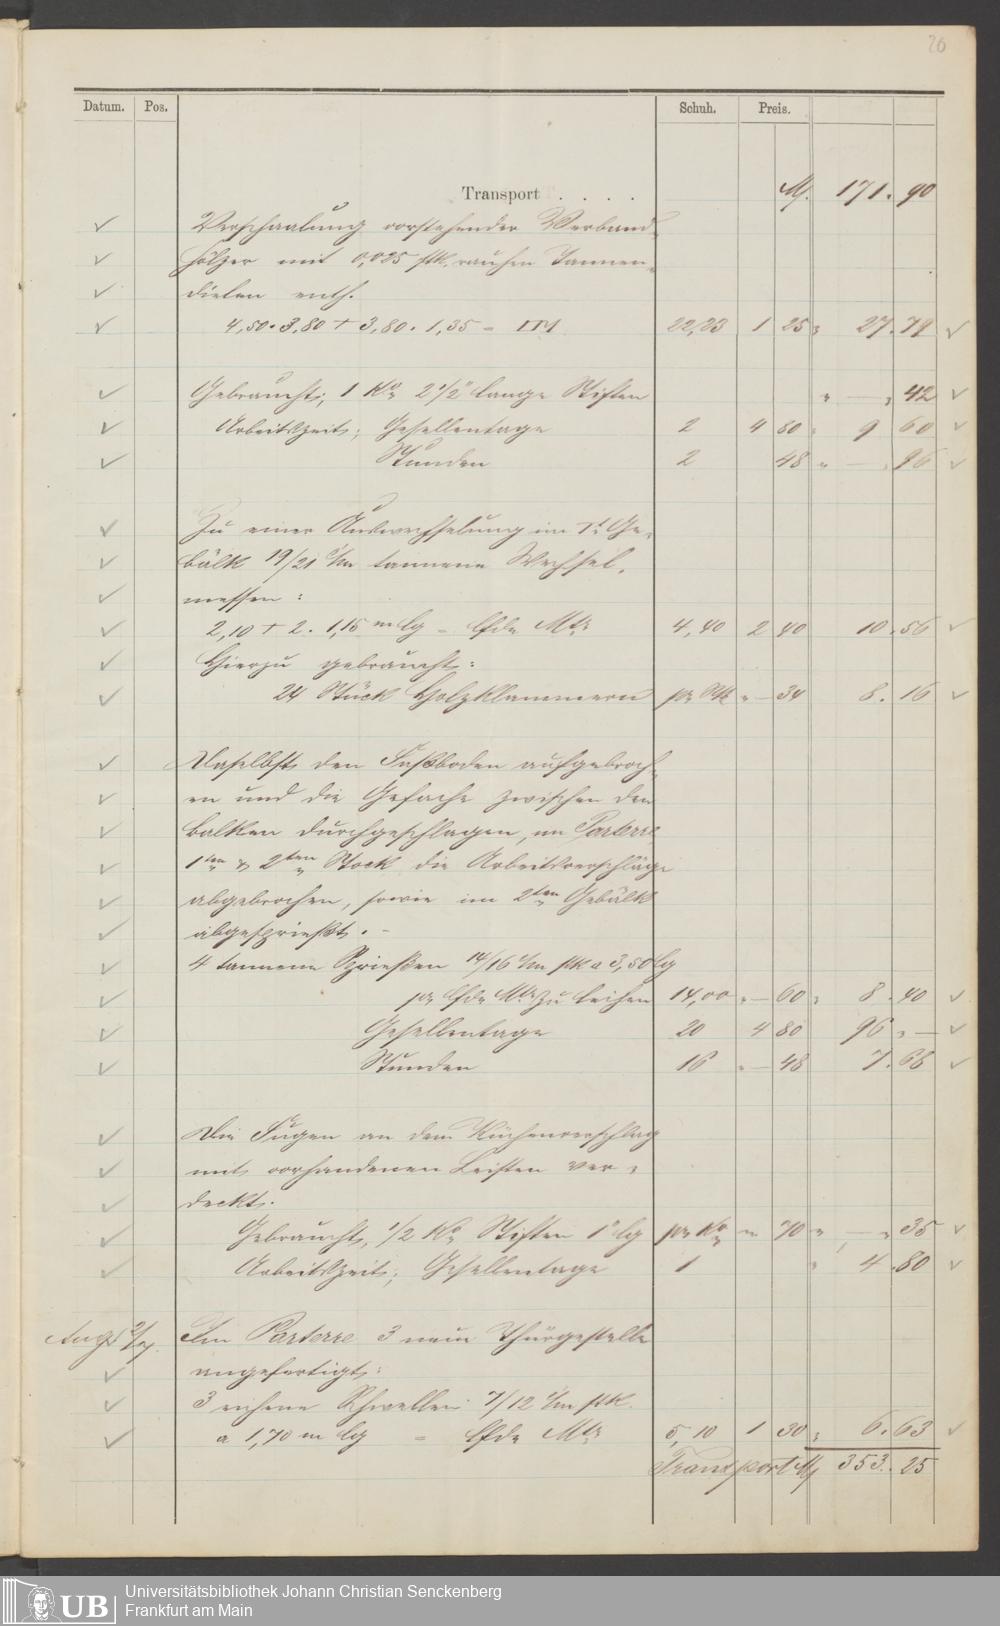 26
Datum. Pos. Schuh. Preis.
Transport . . . . . M. 171. 90
Verschaalung vorstehender Verband-
hölzer mit 0,025 stk. rauhen Tannen-
dielen enth.
4,50 · 3,80 + 3,80 · 1,35 = □M 22,23 1 25 27. 79
Gebraucht; 1 Ko 2 1/2" lange Stiften " — 42
Arbeitszeit; Gesellentage 2 4 80 9 60
Stunden 2 48 " — 96
Zu einer Auswechselung im 1t Ge-
bälk 19/21 c/m tannene Wechsel,
messen:
2,10 + 2 · 1,15 m lg = lfde Mtr 4,40 2 40 10. 56
Hierzu gebraucht:
24 Stück Holzklammern pr Stk " — 34 8. 16
Daselbst den Fußboden aufgebroch-
en und die Gefache zwischen den
Balken durchgeschlagen, im Parterre
1ten & 2ten Stock die Arbeitsverschläge
abgebrochen, sowie im 2ten Gebälk
abgesprießt. -
4 tannene Sprießen 14/16 c/m stk a 3,50 lg
pr lfde Mtr zu leihen 14,00 " — 60 8. 40
Gesellentage 20 4 80 96 " —
Stunden 16 " — 48 7. 68
Die Fugen an dem Küchenverschlag
mit vorhandenen Leisten ver-
deckt.
Gebraucht, 1/2 Ko Stiften 1" lg pr Ko " 70 " — " 35
Arbeitszeit; Gesellentage 1 " 4. 80
Augst Im Parterre 3 neue Thürgestelle
angefertigt:
3 eichene Schwellen 7/12 c/m stk.
a 1,70 m lg = lfde Mtr 5,10 1 30 6. 63
Transport M 353. 25
UB Universitätsbibliothek Johann Christian Senckenberg
Frankfurt am Main